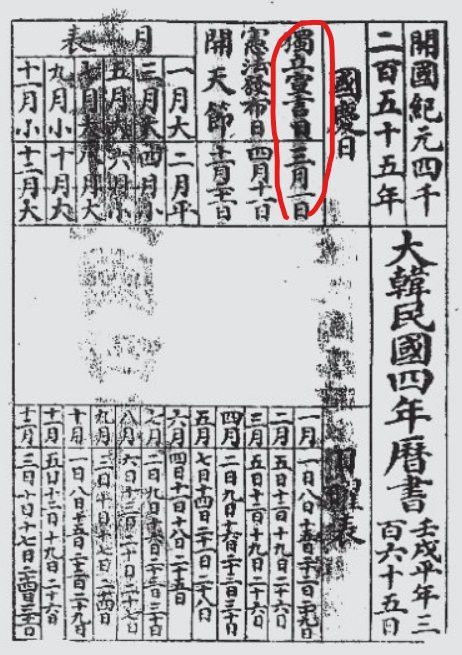 開國紀元四千
二百五十五年
大韓民國四年曆書
壬戌平年三
百六十五日
國慶日
獨立宣言日 三月一日
憲法發布日 四月十一日
開天節
月表
一月大 二月平
三月大 四月小
五月大 六月小
七月大 八月大
九月小 十月大
十一月小 十二月大
日曜表
一月 一日八日十五日二十二日二十九日
二月 五日十二日十九日二十六日
三月 五日十二日十九日二十六日
四月 二日九日十六日二十三日三十日
五月 七日十四日二十一日二十八日
六月 四日十一日十八日二十五日
七月 二日九日十六日二十三日三十日
八月 六日十三日二十日二十七日
九月 三日十日十七日二十四日
十月 一日八日十五日二十二日二十九日
十一月 五日十二日十九日二十六日
十二月 三日十日十七日二十四日三十一日